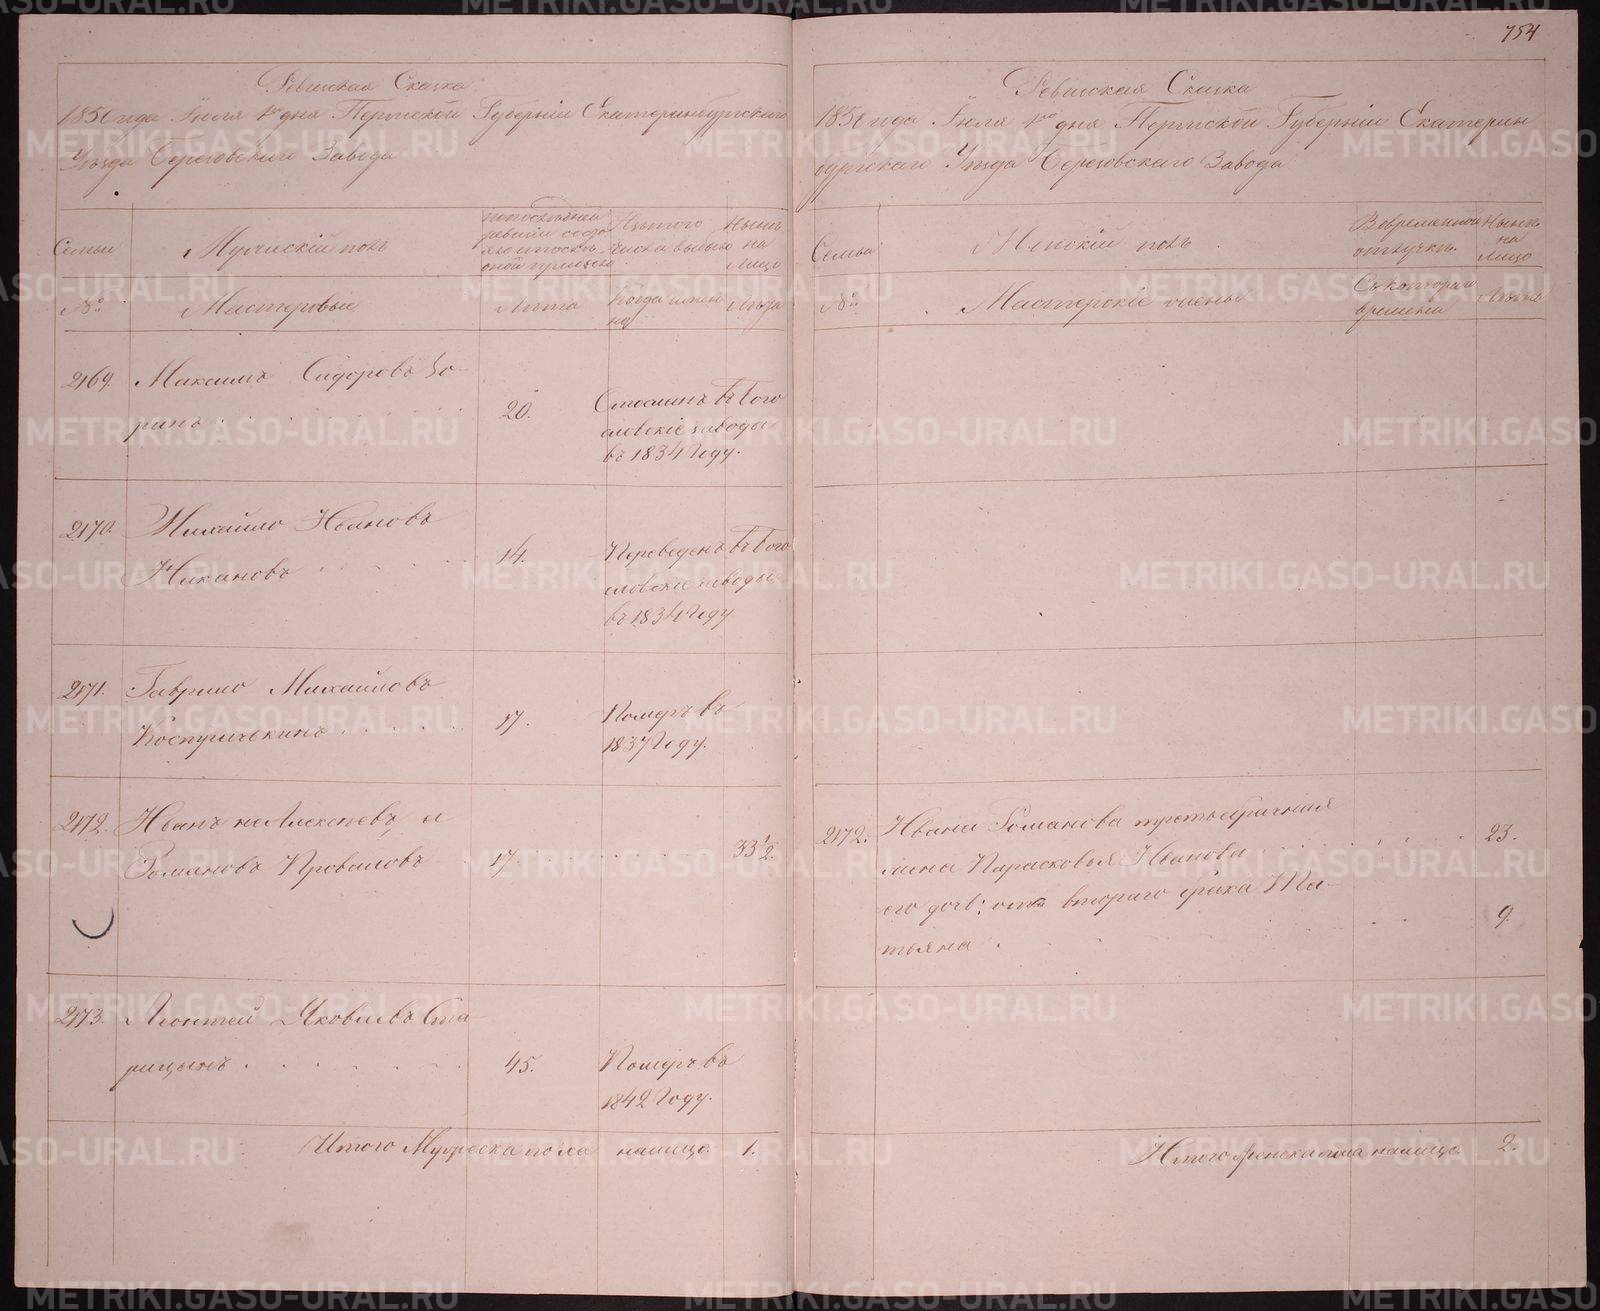 754
Ревизская Сказка
1850 года Июля 1го дня Пермской Губерніи Екатеринбургскаго
Уѣзда Березовскаго Завода
Семьи
Мужескій полъ
по последней
ревизіи
Изъ того
числа выбыло
Нынѣ
на
Лицо
№
Мастеровые
Лѣта
Когда имен
но
Лѣта
2169.
Максимъ Сидоровъ Зо-
ринъ
20.
Отосланъ въ Бого
словскіе заводы
въ 1834 Году.
2170.
Михайло Ивановъ
14.
Переведенъ въ Бого
словскіе заводы
въ 1834 Году
2171.
Гаврило Михайловъ
17.
Померъ въ
1837 Году.
2172.
Иванъ
Романовъ
17.
33 1/2.
2173.
Леонтей Яковлевъ Ста-
рицынъ
45.
Померъ въ
1842 Году.
Итого Мужеска пола налицо 1.
Ревизская Сказка
1850 года Июля 1го дня Пермской Губерніи Екатерин
бургскаго Уѣзда Березовскаго Завода
Семьи
Женскій полъ
Во временной
отлучкѣ
Нынѣ
на
Лицо
№
Мастерскіе жены
Съ котораго
времени
Лѣта
2172.
Ивана Романова третьебрачная
жена Парасковья Иванова
23.
его дочь отъ втораго брака Та-
тьяна
9
Итого женска пола налицо 2.
METRIKI.GASO-URAL.RU